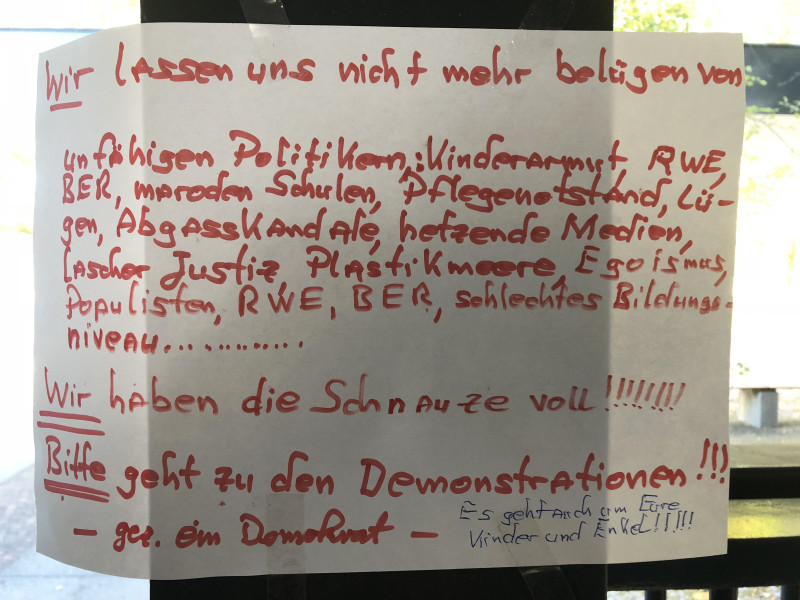 Wir lassen uns nicht mehr belügen von
unfähigen Politikern,: Kinderarmut, RWE,
BER, maroden Schulen, Pflegenotstand, Lü-
gen, Abgasskandale, hetzende Medien,
lascher Justiz, Plastikmeere, Egoismus,
Populisten, RWE, BER, schlechtes Bildungs-
niveau............
Wir haben die Schnauze voll!!!!!!!!
Bitte geht zu den Demonstrationen!!!
- gez. ein Demokrat -
Es geht auch um Eure
Kinder und Enkel!!!!!!